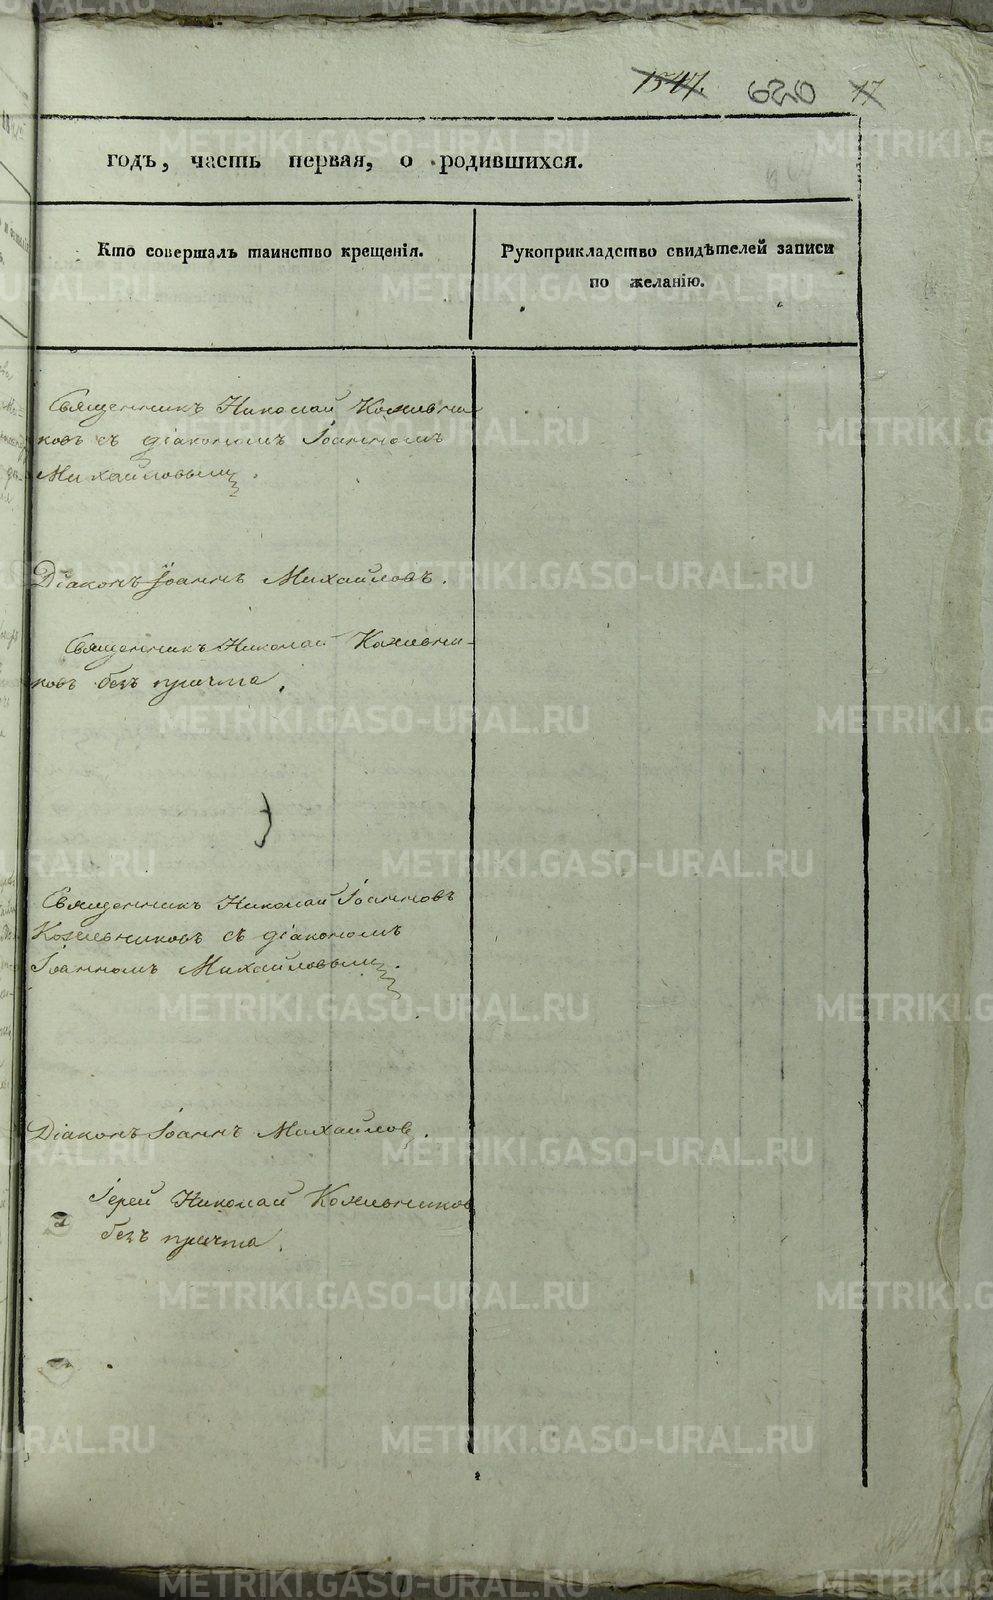 1547. 620 17
годъ, часть первая, о родившихся.
Кто совершалъ таинство крещенія.
Рукоприкладство свидѣтелей записи
по желанію.
Священникъ Николай Кожевни-
ковъ съ діакономъ Іоанномъ
Михайловымъ.
Діаконъ Іоаннъ Михайловъ.
Священникъ Николай Кожевни-
ковъ безъ причта.
Священникъ Николай Іоанновъ
Кожевниковъ съ діакономъ
Іоанномъ Михайловымъ.
Діаконъ Іоаннъ Михайловъ.
Іерей Николай Кожевниковъ
безъ причта.
METRIKI.GASO-URAL.RU